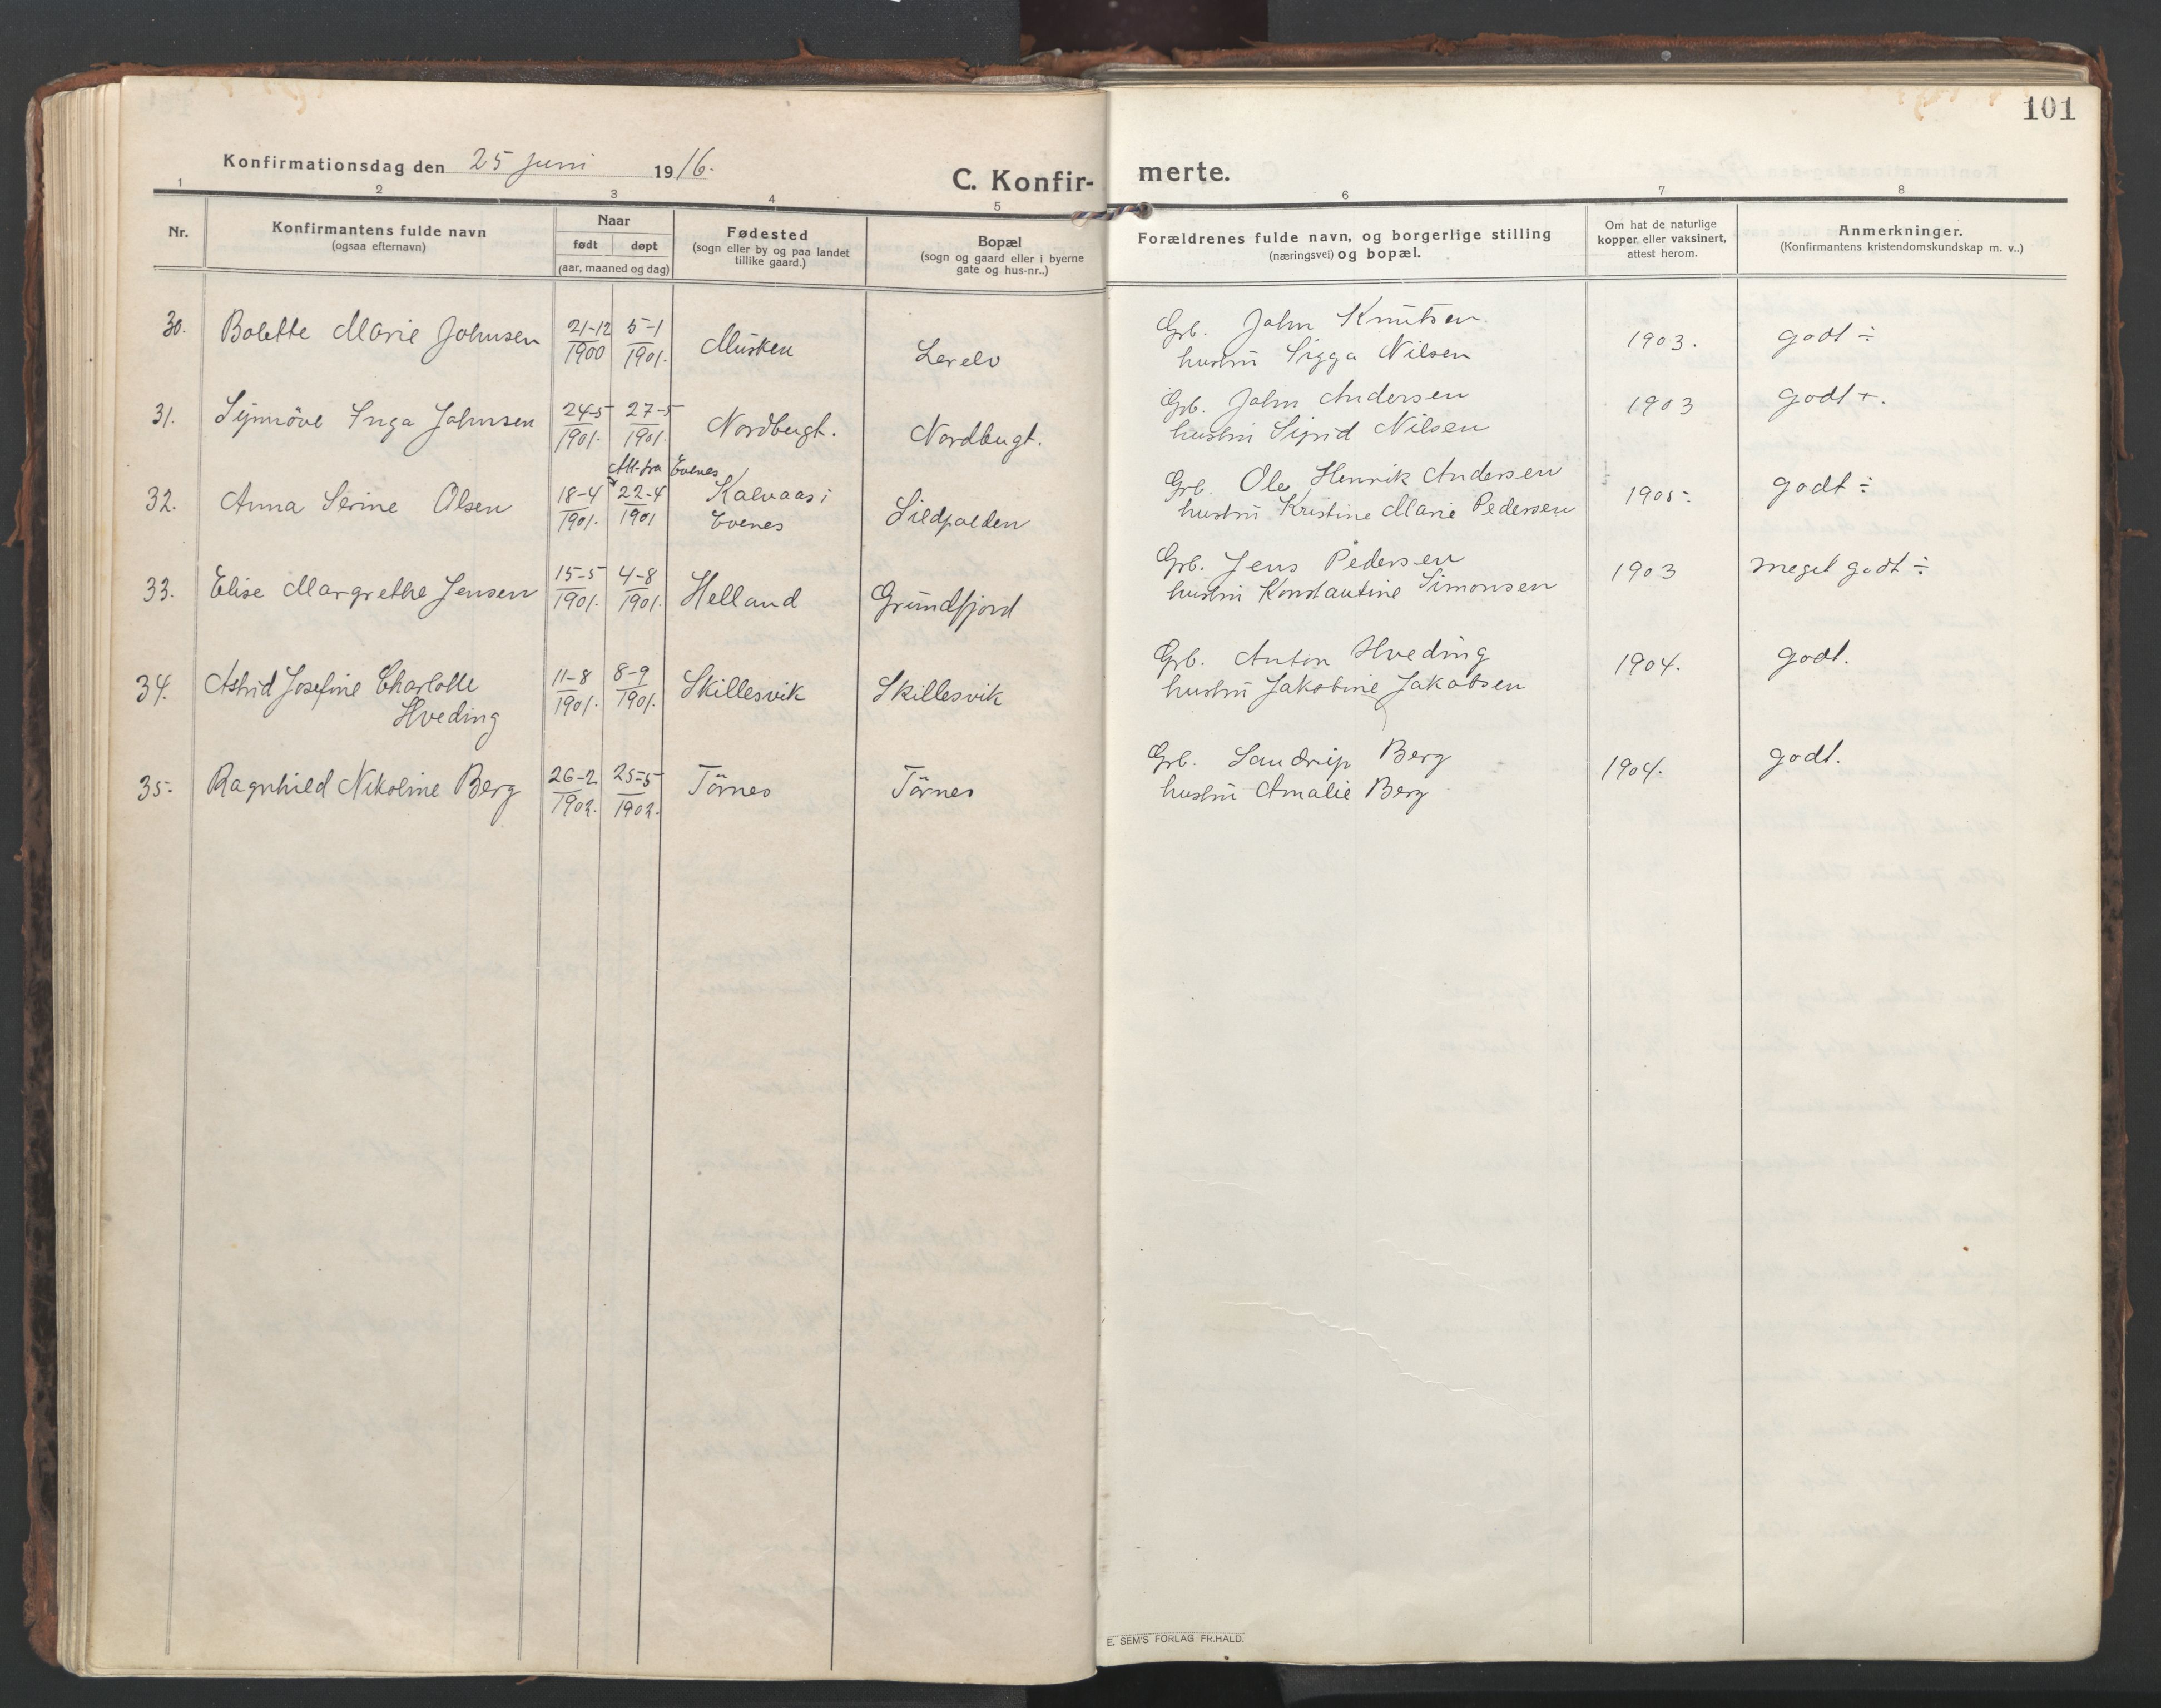 101
Konfirmationsdag den 25 juni 1916.
C. Konfir-merte.
1 2 3 4 5 6 7 8
Nr.
Konfirmantens fulde navn
(ogsaa efternavn)
Naar
født døpt
(aar, maaned og dag)
Fødested
(sogn eller by og paa landet
tillike gaard.)
Bopæl
(sogn og gaard eller i byerne
gate og hus-nr..)
Forældrenes fulde navn, og borgerlige stilling
(næringsvei) og bopæl.
Om hat de naturlige
kopper eller vaksinert,
attest herom.
Anmerkninger.
(Konfirmantens kristendomskundskap m. v..)
30. Bolette Marie Johnsen 21-12 5-1 Musken Lerelv Grb. John Knutsen 1903. godt ÷
1900 1901. hustru Sigga Nilsen
31. Synnöve Inga Johnsen 24-5 27-5 Nordbugt. Nordbugt. Grb. John Andersen 1903 godt +.
1901. 1901. hustru Sigrid Nilsen
Att. fra Evenes
32. Anna Serine Olsen 18-4 22-4 Kalvaas i Sildpolden Grb. Ole Henrik Andersen 1905- godt ÷
1901. 1901 Evenes hustru Kristine Marie Pedersen
33. Elise Margrethe Jensen 15-5 4-8 Helland Grundfjord Grb. Jens Pedersen 1903 meget godt ÷
1901. 1901. hustru Konstantine Simonsen
34. Astrid Josefine Charlotte 11-8 8-9 Skillesvik Skillesvik Grb. Anton Hveding 1904. godt.
Hveding 1901. 1901. hustru Jakobine Jakobsen
35. Ragnhild Nikoline Berg 26-2 25-5 Törnes Törnes Grb. Sandrup Berg 1904. godt.
1902. 1902. hustru Amalie Berg
E. SEM'S FORLAG FR.HALD.